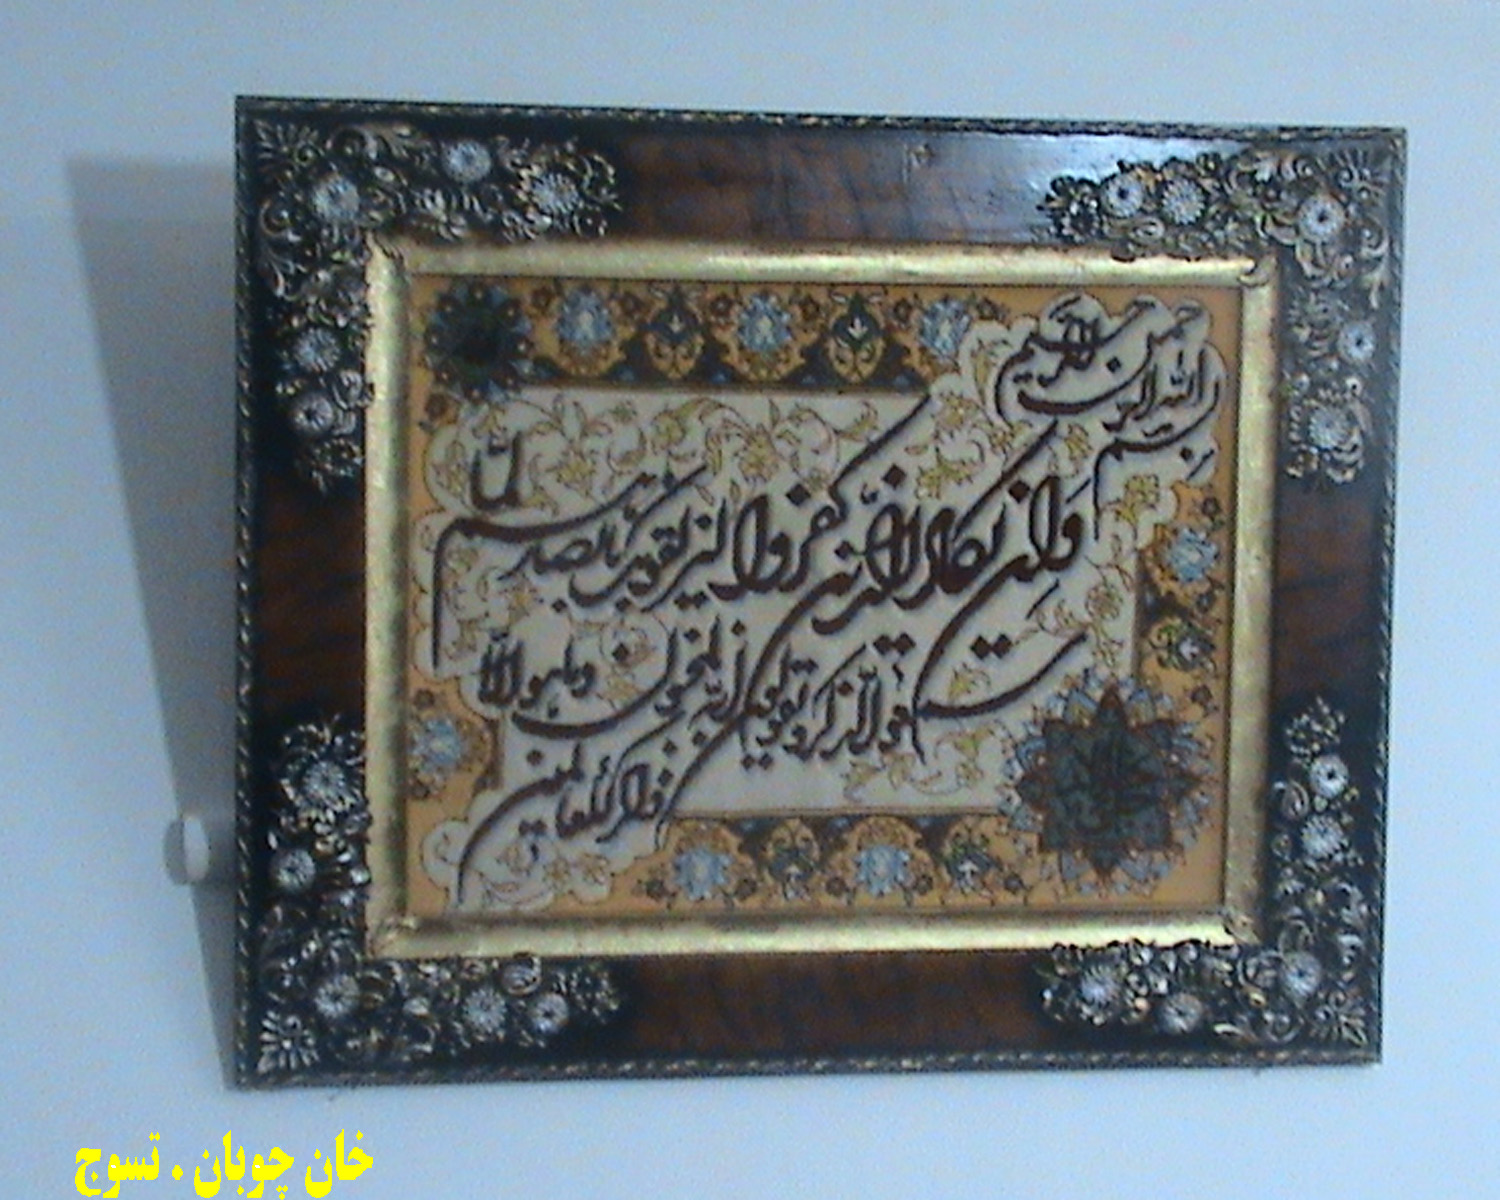 بسم الله الرحمن الرحیم
وَاِن یَکادُ الَّذینَ کَفَروا لَیُزلِقونَکَ بِاَبصارِهِم لَمّا
سَمِعُوا الذِّکرَ وَیَقولونَ اِنَّهُ لَمَجنونٌ وَما هُوَ اِلّا
ذِکرٌ لِلعالَمین
خان چوبان . تسوج